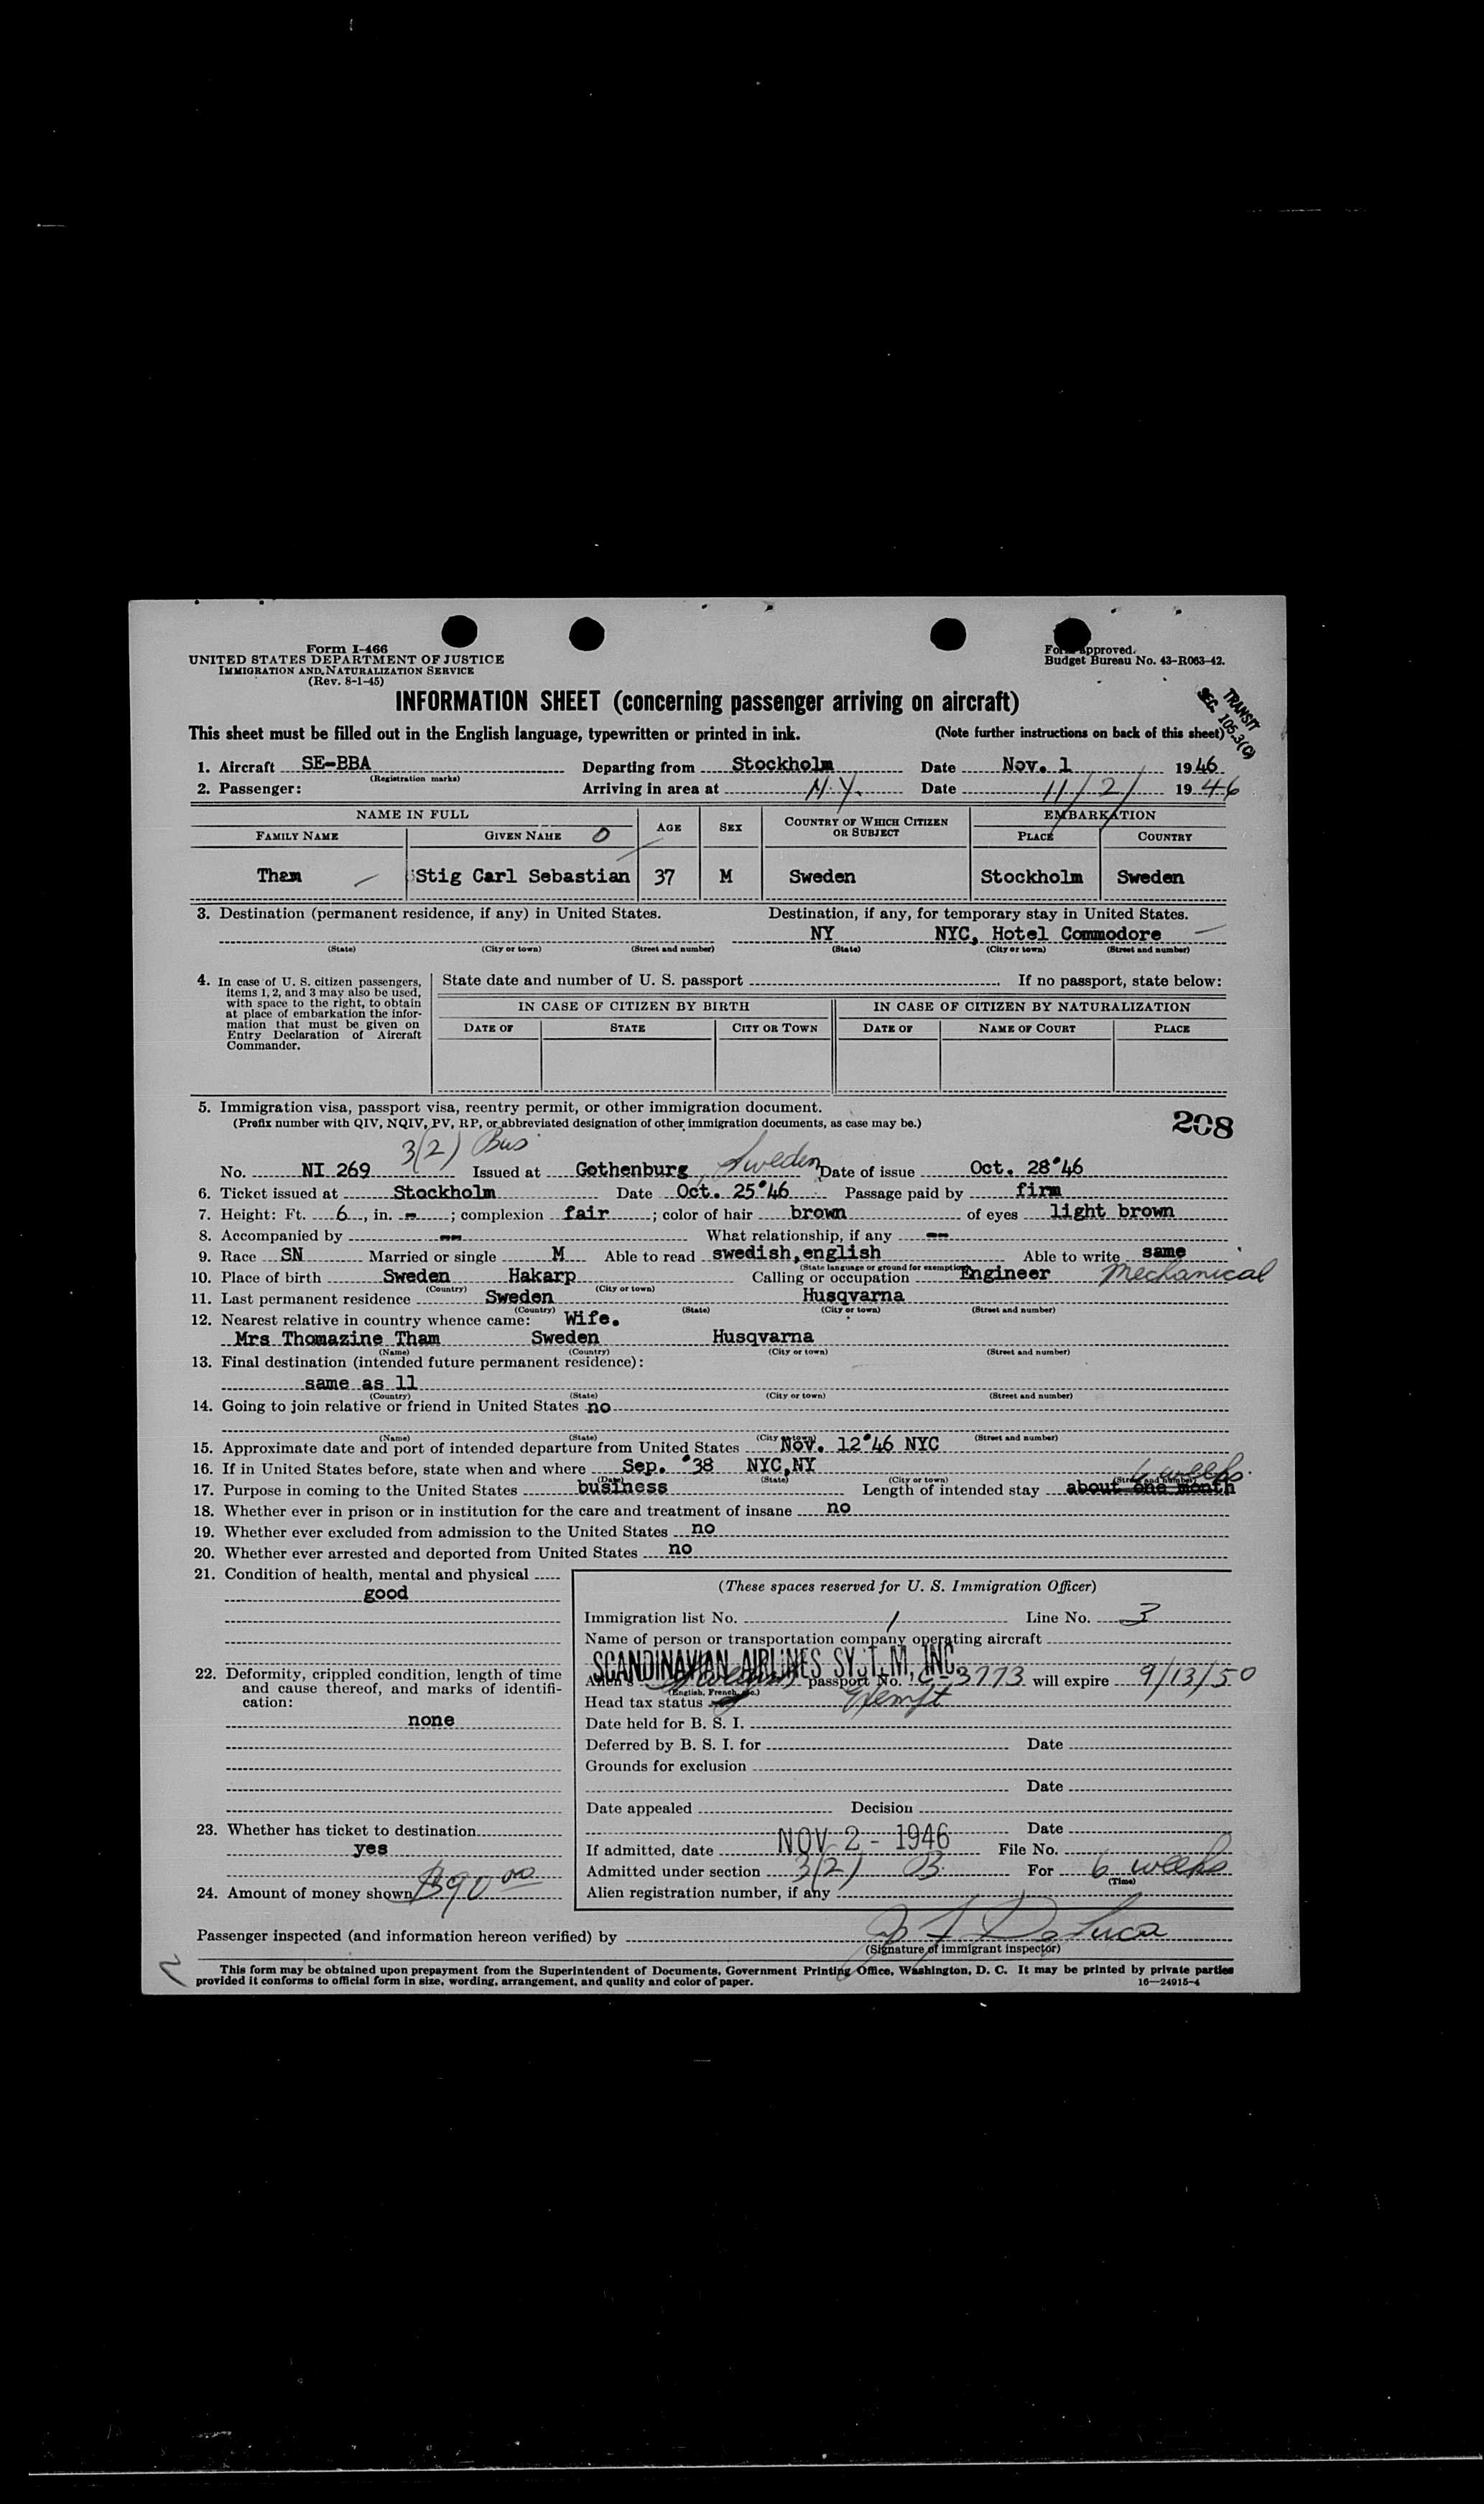 Form I-466
UNITED STATES DEPARTMENT OF JUSTICE
IMMIGRATION AND NATURALIZATION SERVICE
(Rev. 8-1-45)
Form approved.
Budget Bureau No. 43-R063-42.
INFORMATION SHEET (concerning passenger arriving on aircraft)
TRANSIT
SEC. 105.3(C)
This sheet must be filled out in the English language, typewritten or printed in ink. (Note further instructions on back of this sheet)
1. Aircraft SE-BBA Departing from Stockholm Date Nov. 1 1946
(Registration marks)
2. Passenger: Arriving in area at N.Y. Date 11/2/ 1946
NAME IN FULL AGE SEX COUNTRY OF WHICH CITIZEN OR SUBJECT EMBARKATION
FAMILY NAME GIVEN NAME O PLACE COUNTRY
Tham Stig Carl Sebastian 37 M Sweden Stockholm Sweden
3. Destination (permanent residence, if any) in United States. Destination, if any, for temporary stay in United States.
NY NYC, Hotel Commodore
(State) (City or town) (Street and number) (State) (City or town) (Street and number)
4. In case of U. S. citizen passengers, items 1, 2, and 3 may also be used, with space to the right, to obtain at place of embarkation the information that must be given on Entry Declaration of Aircraft Commander.
State date and number of U. S. passport If no passport, state below:
IN CASE OF CITIZEN BY BIRTH IN CASE OF CITIZEN BY NATURALIZATION
DATE OF STATE CITY OR TOWN DATE OF NAME OF COURT PLACE
5. Immigration visa, passport visa, reentry permit, or other immigration document.
(Prefix number with QIV, NQIV, PV, RP, or abbreviated designation of other immigration documents, as case may be.)
208
3(2) Bus
No. NI 269 Issued at Gothenburg, Sweden Date of issue Oct. 28'46
6. Ticket issued at Stockholm Date Oct. 25'46 Passage paid by firm
7. Height: Ft. 6, in. -; complexion fair; color of hair brown of eyes light brown
8. Accompanied by -- What relationship, if any --
9. Race SN Married or single M Able to read swedish,english Able to write same
(State language or ground for exemption)
10. Place of birth Sweden Hakarp Calling or occupation Engineer Mechanical
(Country) (City or town)
11. Last permanent residence Sweden Husqvarna
(Country) (State) (City or town) (Street and number)
12. Nearest relative in country whence came: Wife.
Mrs Thomazine Tham Sweden Husqvarna
(Name) (Country) (City or town) (Street and number)
13. Final destination (intended future permanent residence):
same as 11
(Country) (State) (City or town) (Street and number)
14. Going to join relative or friend in United States no
(Name) (State) (City or town) (Street and number)
15. Approximate date and port of intended departure from United States Nov. 12'46 NYC
16. If in United States before, state when and where Sep. '38 NYC,NY
(Date) (State) (City or town) (Street and number)
6 weeks.
17. Purpose in coming to the United States business Length of intended stay about one month
18. Whether ever in prison or in institution for the care and treatment of insane no
19. Whether ever excluded from admission to the United States no
20. Whether ever arrested and deported from United States no
21. Condition of health, mental and physical
good
22. Deformity, crippled condition, length of time and cause thereof, and marks of identification:
none
23. Whether has ticket to destination
yes
24. Amount of money shown $90 00
(These spaces reserved for U. S. Immigration Officer)
Immigration list No. 1 Line No. 3
Name of person or transportation company operating aircraft
SCANDINAVIAN AIRLINES SYSTEM, INC.
Alien's passport No. C-3773 will expire 9/13/50
(English, French, etc.)
Head tax status Exempt
Date held for B. S. I.
Deferred by B. S. I. for Date
Grounds for exclusion
Date
Date appealed Decision
Date
If admitted, date NOV 2 - 1946 File No.
Admitted under section 3(2) B. For 6 weeks
(Time)
Alien registration number, if any
Passenger inspected (and information hereon verified) by
(Signature of immigrant inspector)
This form may be obtained upon prepayment from the Superintendent of Documents, Government Printing Office, Washington, D. C. It may be printed by private parties
provided it conforms to official form in size, wording, arrangement, and quality and color of paper. 16—24915-4